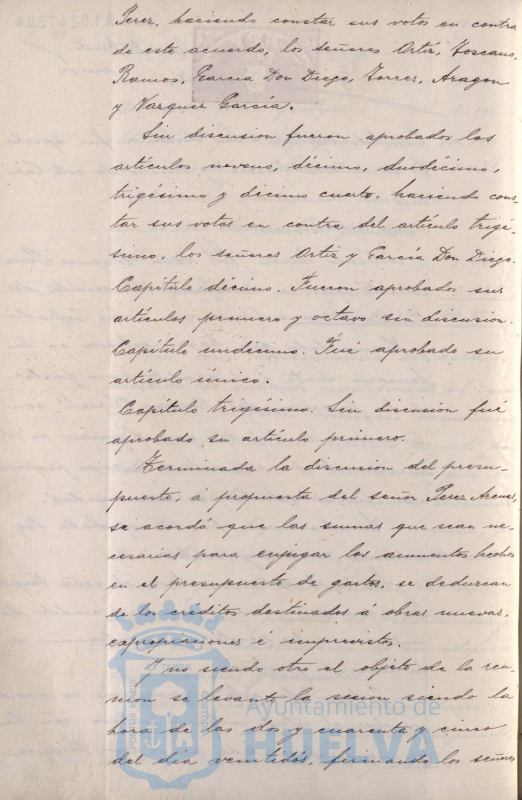 Perez, haciendo constar sus votos en contra
de este acuerdo, los señores Ortiz, Toscano,
Ramos, Garcia Don Diego, Torres, Aragon
y Vazquez Garcia.
Sin discusion fueron aprobados los
artículos noveno, décimo, duodécimo,
trigésimo y décimo cuarto, haciendo cons-
tar sus votos en contra del artículo trigé-
simo, los señores Ortiz y García Don Diego.
Capítulo décimo. Fueron aprobados sus
artículos primero y octavo sin discusion.
Capítulo undécimo. Fué aprobado su
artículo único.
Capítulo trigésimo. Sin discusion fué
aprobado su artículo primero.
Terminada la discusion del presu-
puesto, á propuesta del señor Perez
se acordó que las sumas que sean ne-
cesarias para enjugar los aumentos hechos
en el presupuesto de gastos, se deduzcan
de los créditos destinados á obras nuevas,
expropiaciones é imprevistos.
Y no siendo otro el objeto de la reu-
nion se levantó la sesion siendo la
hora de las dos y cuarenta y cinco
del dia veintidós, firmando los señores
Ayuntamiento de
HUELVA